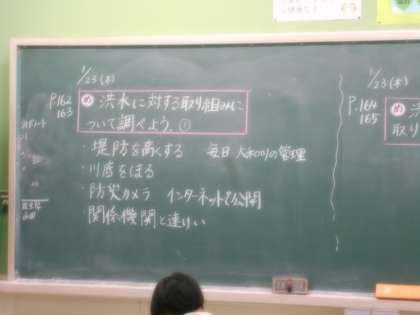 1/23(木)
P.162
163
め 洪水に対する取り組みに
ついて調べよう。①
・堤防を高くする 毎日 大和川の管理
・川底をほる
・防災カメラ インターネットで公開
関係機関と連けい
1/23(木)
P.164
165
め 洪
取り